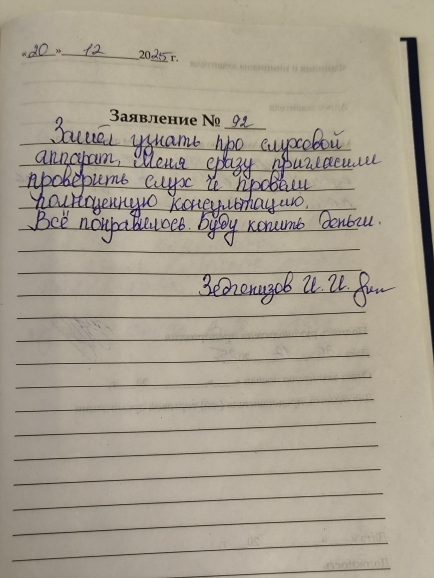 «20» 12 2025 г.
Заявление № 92
Зашёл узнать про слуховой
аппарат, меня сразу пригласили
проверить слух и провели
полноценную консультацию.
Всё понравилось. Буду копить деньги.
Зедгенизов И. И.